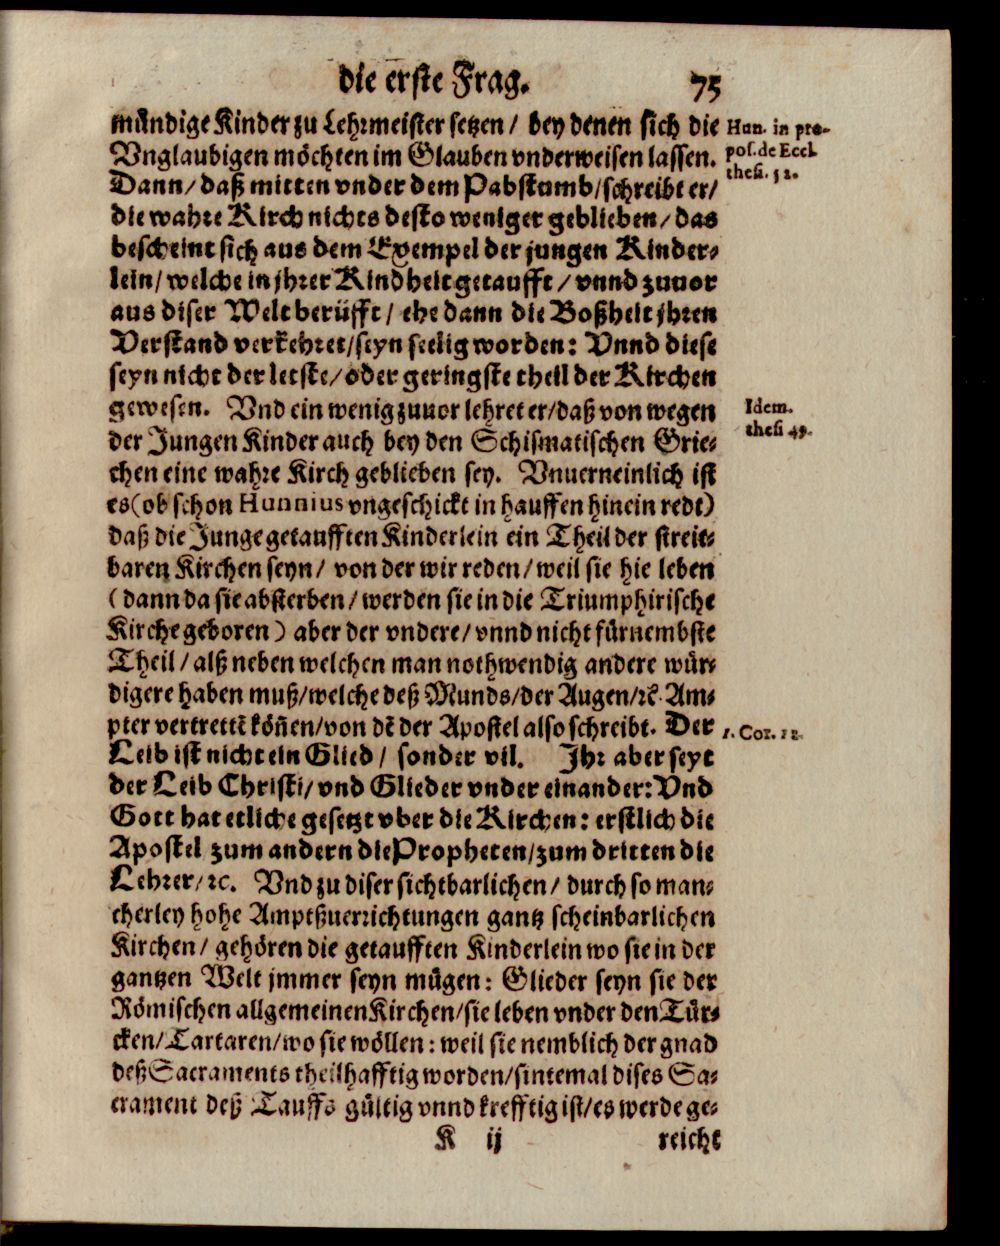 die erste Frag. 75
mündige Kinder zu Lehrmeister setzen / bey denen sich die
Vnglaubigen möchten im Glauben vnderweisen lassen.
Dann / daß mitten vnder dem Pabstumb / schreibt er /
die wahre Kirch nichts desto weniger geblieben / das
bescheint sich aus dem Exempel der jungen Kinder⸗
lein / welche in jhrer Kindheit getaufft / vnnd zuuor
aus diser Welt berüfft / ehe dann die Boßheit jhren
Verstand verkehret / seyn seelig worden: Vnnd diese
seyn nicht der letste / oder geringste theil der Kirchen
gewesen. Vnd ein wenig zuuor lehret er / daß von wegen
der Jungen Kinder auch bey den Schismatischen Grie⸗
chen eine wahre Kirch geblieben sey. Vnuerneinlich ist
es (ob schon Hunnius vngeschickt in hauffen hinein redt)
daß die Junge getaufften Kinderlein ein Theil der streit⸗
baren Kirchen seyn / von der wir reden / weil sie hie leben
(dann da sie absterben / werden sie in die Triumphirische
Kirche geboren) aber der vndere / vnnd nicht fürnembste
Theil / alß neben welchen man nothwendig andere wür⸗
digere haben muß / welche deß Munds / der Augen / ꝛc. Am⸗
pter vertrettē köñen / von dē der Apostel also schreibt. Der
Leib ist nicht ein Glied / sonder vil. Jhr aber seyt
der Leib Christi / vnd Glieder vnder einander: Vnd
Gott hat etliche gesetzt vber die Kirchen: erstlich die
Apostel zum andern die Propheten / zum dritten die
Lehrer / ꝛc. Vnd zu diser sichtbarlichen / durch so man⸗
cherley hohe Amptßuerrichtungen gantz scheinbarlichen
Kirchen / gehören die getaufften Kinderlein wo sie in der
gantzen Welt jmmer seyn mügen: Glieder seyn sie der
Römischen allgemeinen Kirchen / sie leben vnder den Tür⸗
cken / Tartaren / wo sie wöllen: weil sie nemblich der gnad
deß Sacraments theilhafftig worden / sintemal dises Sa⸗
crament deß Tauffs gültig vnnd krefftig ist / es werde ge⸗
K ij reicht
Hun. in pro-
pos. de Eccl.
thesi. 52.
Idem.
thesi 49.
1. Cor. 12.